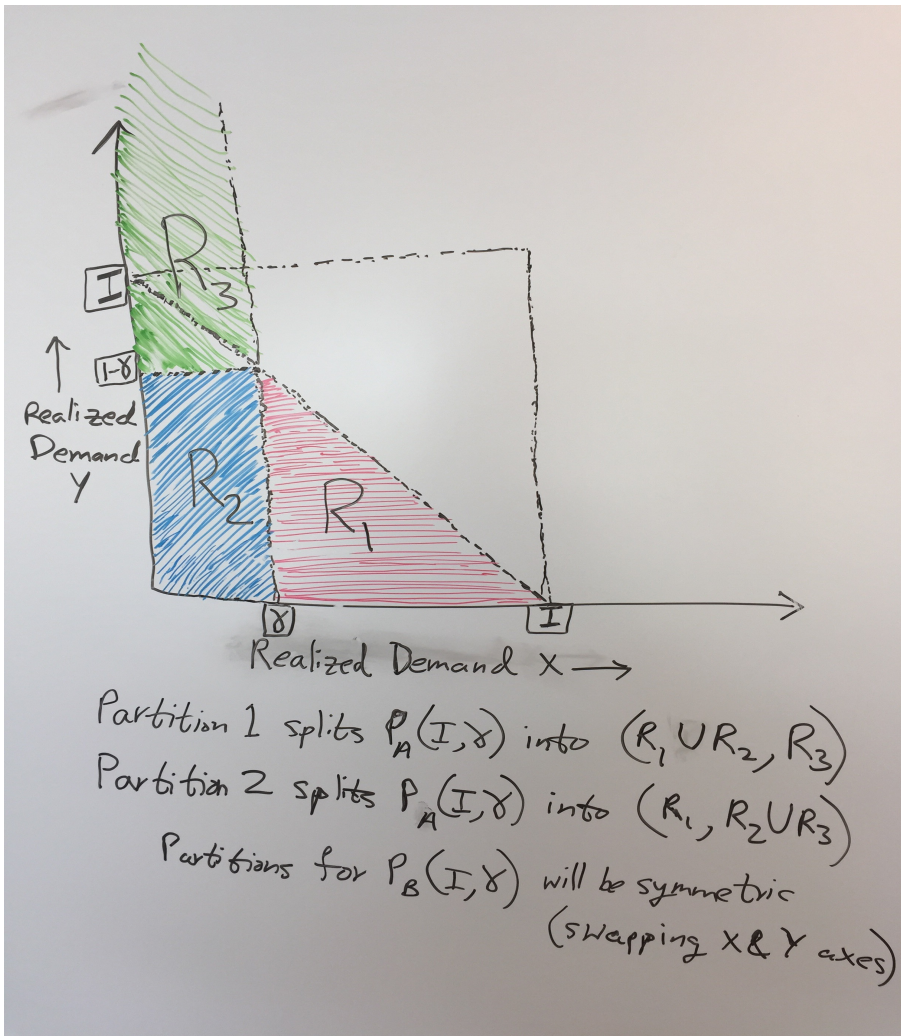 R₃
I
1-γ
Realized
Demand
Y
R₂
R₁
γ
I
Realized Demand X →
Partition 1 splits P_A(I,γ) into (R₁ ∪ R₂, R₃)
Partition 2 splits P_A(I,γ) into (R₁, R₂ ∪ R₃)
Partitions for P_B(I,γ) will be symmetric
(swapping X & Y axes)